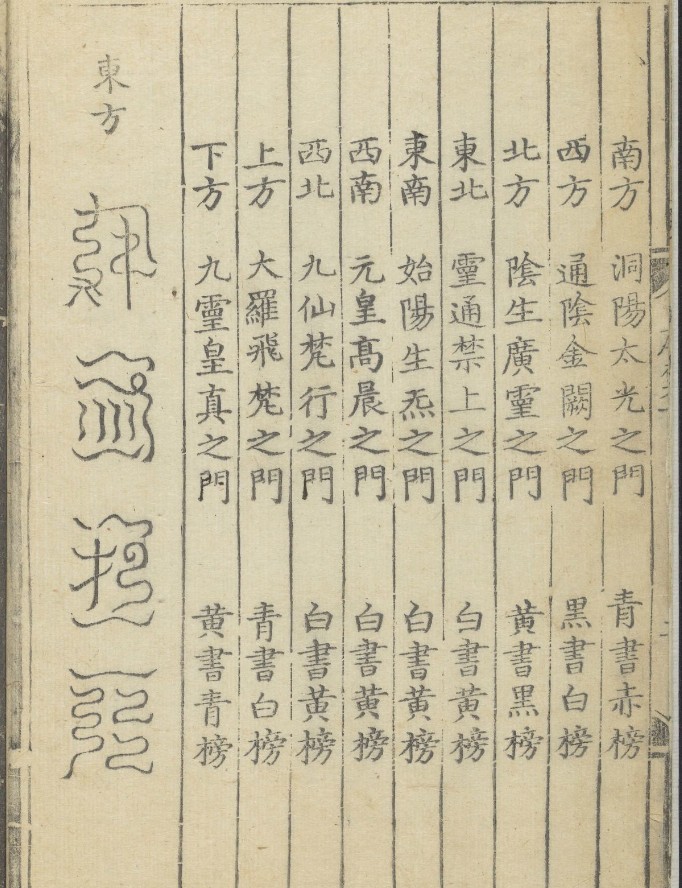 南方 洞陽太光之門 青書赤榜
西方 通陰金闕之門 黑書白榜
北方 陰生廣霊之門 黄書黑榜
東北 霊通禁上之門 白書黄榜
東南 始陽生炁之門 白書黄榜
西南 元皇髙晨之門 白書黄榜
西北 九仙梵行之門 白書黄榜
上方 大羅飛梵之門 青書白榜
下方 九霊皇真之門 黄書青榜
東方